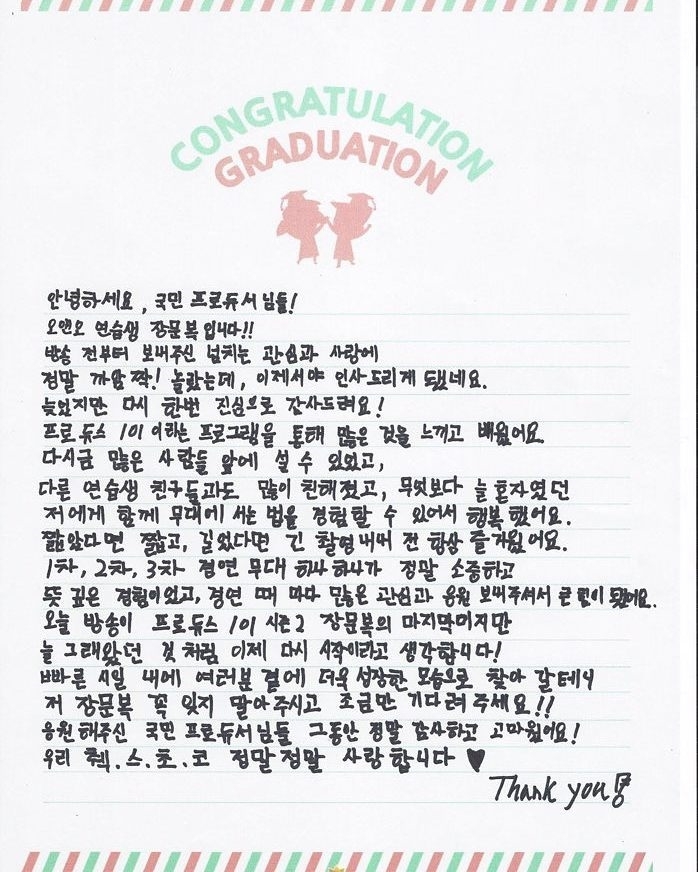 CONGRATULATION
GRADUATION
안녕하세요, 국민 프로듀서님들!
오앤오 연습생 장문복입니다!!
방송 전부터 보내주신 넘치는 관심과 사랑에
정말 깜암짝! 놀랐는데, 이제서야 인사드리게 됐네요.
늦었지만 다시 한번 진심으로 감사드려요!
프로듀스 101 이라는 프로그램을 통해 많은 것을 느끼고 배웠어요.
다시금 많은 사람들 앞에 설 수 있었고,
다른 연습생 친구들과도 많이 친해졌고, 무엇보다 늘 혼자였던
저에게 함께 무대에 서는 법을 경험할 수 있어서 행복했어요.
짧았다면 짧고, 길었다면 긴 촬영내내 전 항상 즐거웠어요.
1차, 2차, 3차 경연 무대 하나하나가 정말 소중하고
뜻 깊은 경험이었고, 경연 때 마다 많은 관심과 응원 보내주셔서 큰 힘이 됐어요.
오늘 방송이 프로듀스 101 시즌2 장문복의 마지막이지만
늘 그래왔던 것 처럼 이제 다시 시작이라고 생각합니다!
빠른 시일 내에 여러분 곁에 더욱 성장한 모습으로 찾아 갈테니
저 장문복 꼭 잊지 말아주시고 조금만 기다려주세요!!
응원해주신 국민 프로듀서님들 그동안 정말 감사하고 고마웠어요!
우리 췍.스.초.코 정말정말 사랑합니다 ♥
Thank you